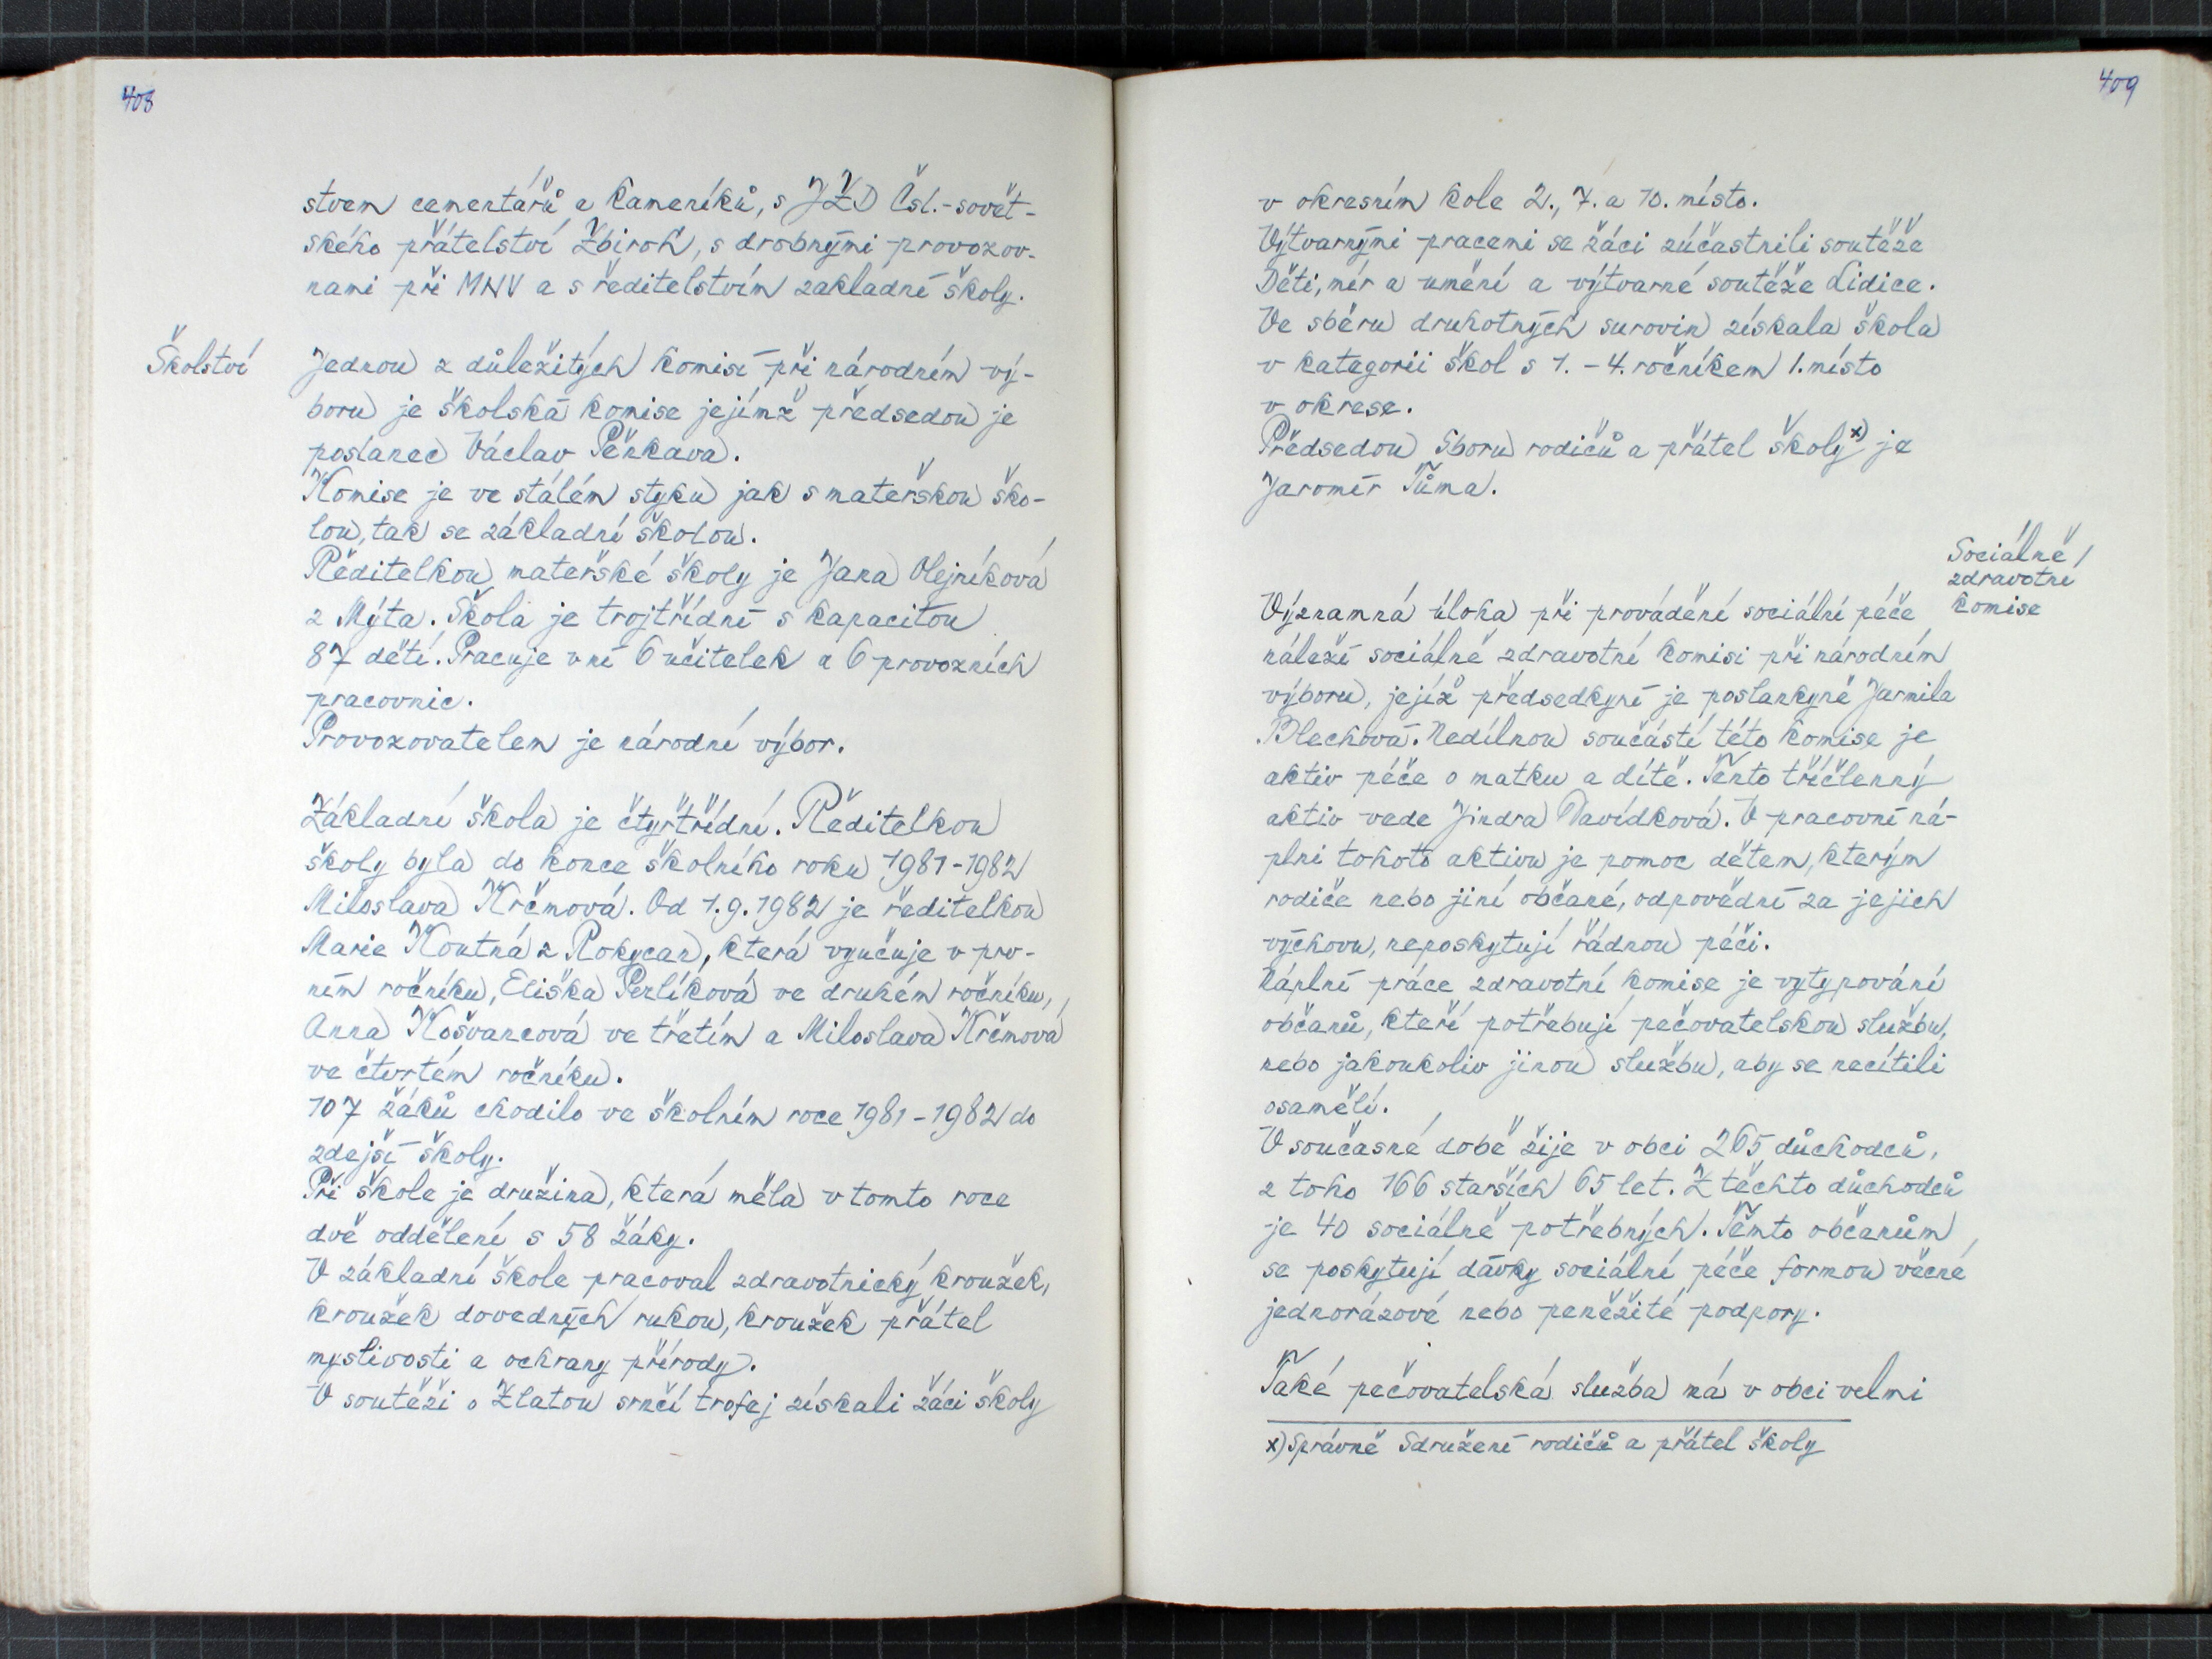 408
stvem cementářů a kameníků, s JZD Čsl.-sovět-
ského přátelství Zbiroh, s drobnými provozov-
nami při MNV a s ředitelstvím zakládní školy.
Školství
Jednou z důležitých komisí při národním vý-
boru je školská komise jejímž předsedou je
poslanec Václav Pěnkava.
Komise je ve stálém styku jak s mateřskou ško-
lou, tak se základní školou.
Ředitelkou mateřské školy je Jana Olejníková
z Mýta. Škola je trojtřídní s kapacitou
87 dětí. Pracuje v ní 6 učitelek a 6 provozních
pracovnic.
Provozovatelem je národní výbor.
Základní škola je čtyřtřídní. Ředitelkou
školy byla do konce školního roku 1981-1982
Miloslava Krčmová. Od 1.9.1982 je ředitelkou
Marie Koutná z Rokycan, která vyučuje v prv-
ním ročníku, Eliška Perlíková ve druhém ročníku,
Anna Košvancová ve třetím a Miloslava Krčmová
ve čtvrtém ročníku.
107 žáků chodilo ve školním roce 1981-1982 do
zdejší školy.
Při škole je družina, která měla v tomto roce
dvě oddělení s 58 žáky.
V základní škole pracoval zdravotnický kroužek,
kroužek dovedných rukou, kroužek přátel
myslivosti a ochrany přírody.
V soutěži o Zlatou srnčí trofej získali žáci školy
409
v okresním kole 2., 7. a 10. místo.
Výtvarnými pracemi se žáci zúčastnili soutěže
Děti, mír a umění a výtvarné soutěže Lidice.
Ve sběru druhotných surovin získala škola
v kategorii škol s 1. - 4. ročníkem 1. místo
v okrese.
Předsedou Sboru rodičů a přátel školy x) je
Jaromír Tůma.
Sociálně
zdravotní
komise
Významná úloha při provádění sociální péče
náleží sociálně zdravotní komisi při národním
výboru, jejíž předsedkyní je poslankyně Jarmila
Blechová. Nedílnou součástí této komise je
aktiv péče o matku a dítě. Tento tříčlenný
aktiv vede Jindra Davídková. V pracovní ná-
plni tohoto aktivu je pomoc dětem, kterým
rodiče nebo jiní občané, odpovědní za jejich
výchovu, neposkytují řádnou péči.
Náplní práce zdravotní komise je vytypování
občanů, kteří potřebují pečovatelskou službu,
nebo jakoukoliv jinou službu, aby se necítili
osamělí.
V současné době žije v obci 265 důchodců,
z toho 166 starších 65 let. Z těchto důchodců
je 40 sociálně potřebných. Těmto občanům
se poskytují dávky sociální péče formou věcné
jednorázové nebo peněžité podpory.
Také pečovatelská služba má v obci velmi
x) Správně Sdružení rodičů a přátel školy